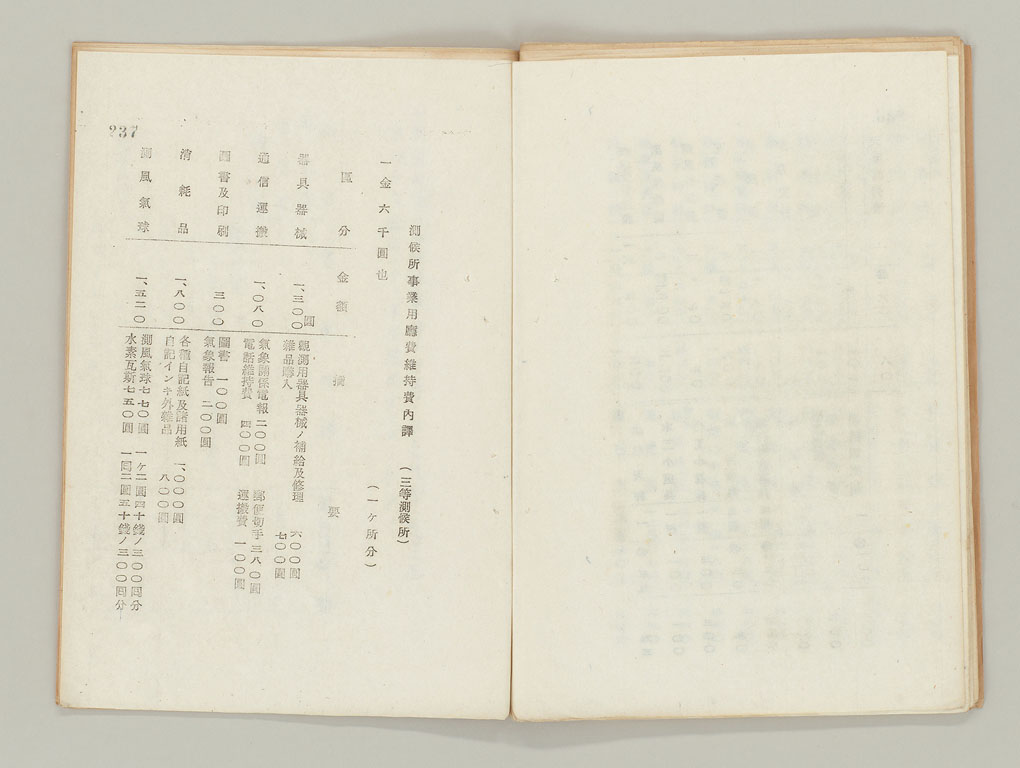 測候所事業用廳費維持費內譯 (三等測候所)
一金六千圓也 (一ヶ所分)
區分 金額 摘要
器具器械 一、三〇〇圓 觀測用器具器械ノ補給及修理 六〇〇圓
雜品購入 七〇〇圓
通信運搬 一、〇八〇 氣象關係電報 二〇〇圓 郵便切手 三八〇圓
電話維持費 四〇〇圓 運搬費 一〇〇圓
圖書及印刷 三〇〇 圖書 一〇〇圓
氣象報告 二〇〇圓
消耗品 一、八〇〇 各種自記紙及諸用紙 一、〇〇〇圓
自記インキ外雜品 八〇〇圓
測風氣球 一、五二〇 測風氣球七七〇圓 一ケ二圓四十錢ノ三〇〇囘分
水素瓦斯七五〇圓 一囘二圓五十錢ノ三〇〇囘分
237